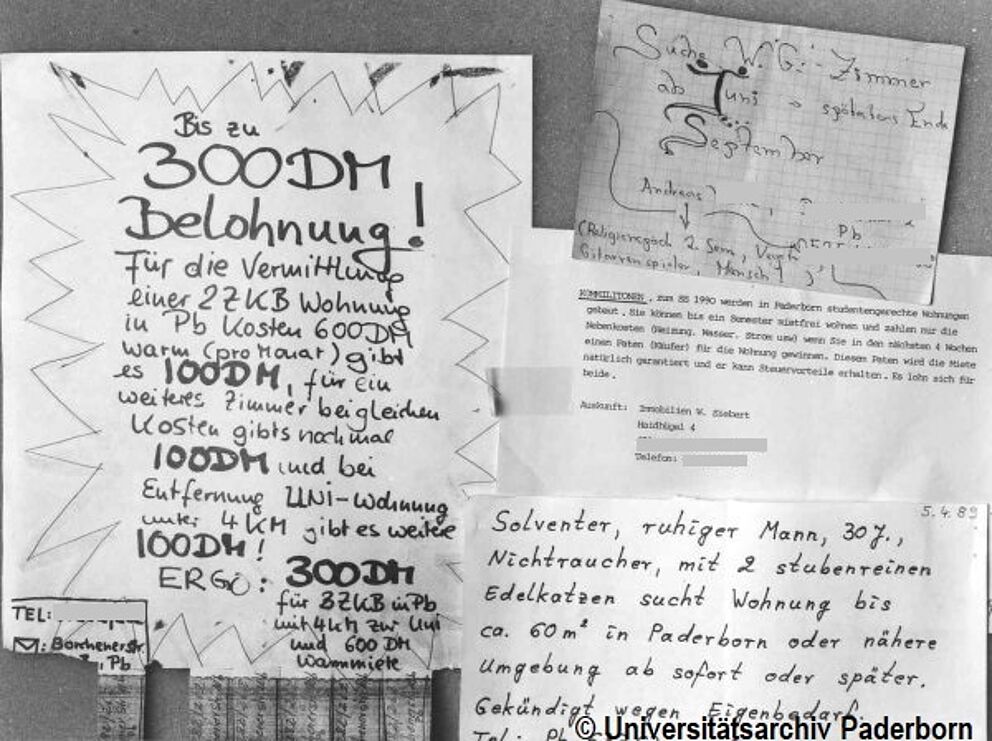 Bis zu
300DM
Belohnung!
Für die Vermittlung
einer 2ZKB Wohnung
in Pb Kosten 600DM
warm (pro Monat) gibt
es 100DM, für ein
weiteres Zimmer bei gleichen
Kosten gibts nochmal
100DM und bei
Entfernung UNI-Wohnung
unter 4KM gibt es weitere
100DM!
ERGO: 300DM
für 3ZKB in Pb
mit 4km zur Uni
und 600 DM
Warmmiete
TEL:
Borchenerstr.
Pb
Suche W.G.-Zimmer
ab Juni → spätestens Ende
September
Andreas
Pb
2. Sem,
Gitarrenspieler, Mensch!
KOMMILITONEN, zum SS 1990 werden in Paderborn studentengerechte Wohnungen
gebaut. Sie können bis ein Semester mietfrei wohnen und zahlen nur die
Nebenkosten (Heizung, Wasser, Strom usw) wenn Sie in den nächsten 4 Wochen
einen Paten (Käufer) für die Wohnung gewinnen. Diesem Paten wird die Miete
natürlich garantiert und er kann Steuervorteile erhalten. Es lohn sich für
beide.
Auskunft: Immobilien W. Siebert
Haidhügel 4
Telefon:
5.4.89
Solventer, ruhiger Mann, 30 J.,
Nichtraucher, mit 2 stubenreinen
Edelkatzen sucht Wohnung bis
ca. 60m² in Paderborn oder nähere
Umgebung ab sofort oder später.
Gekündigt wegen Eigenbedarf.
Tel.: Pb
©Universitätsarchiv Paderborn